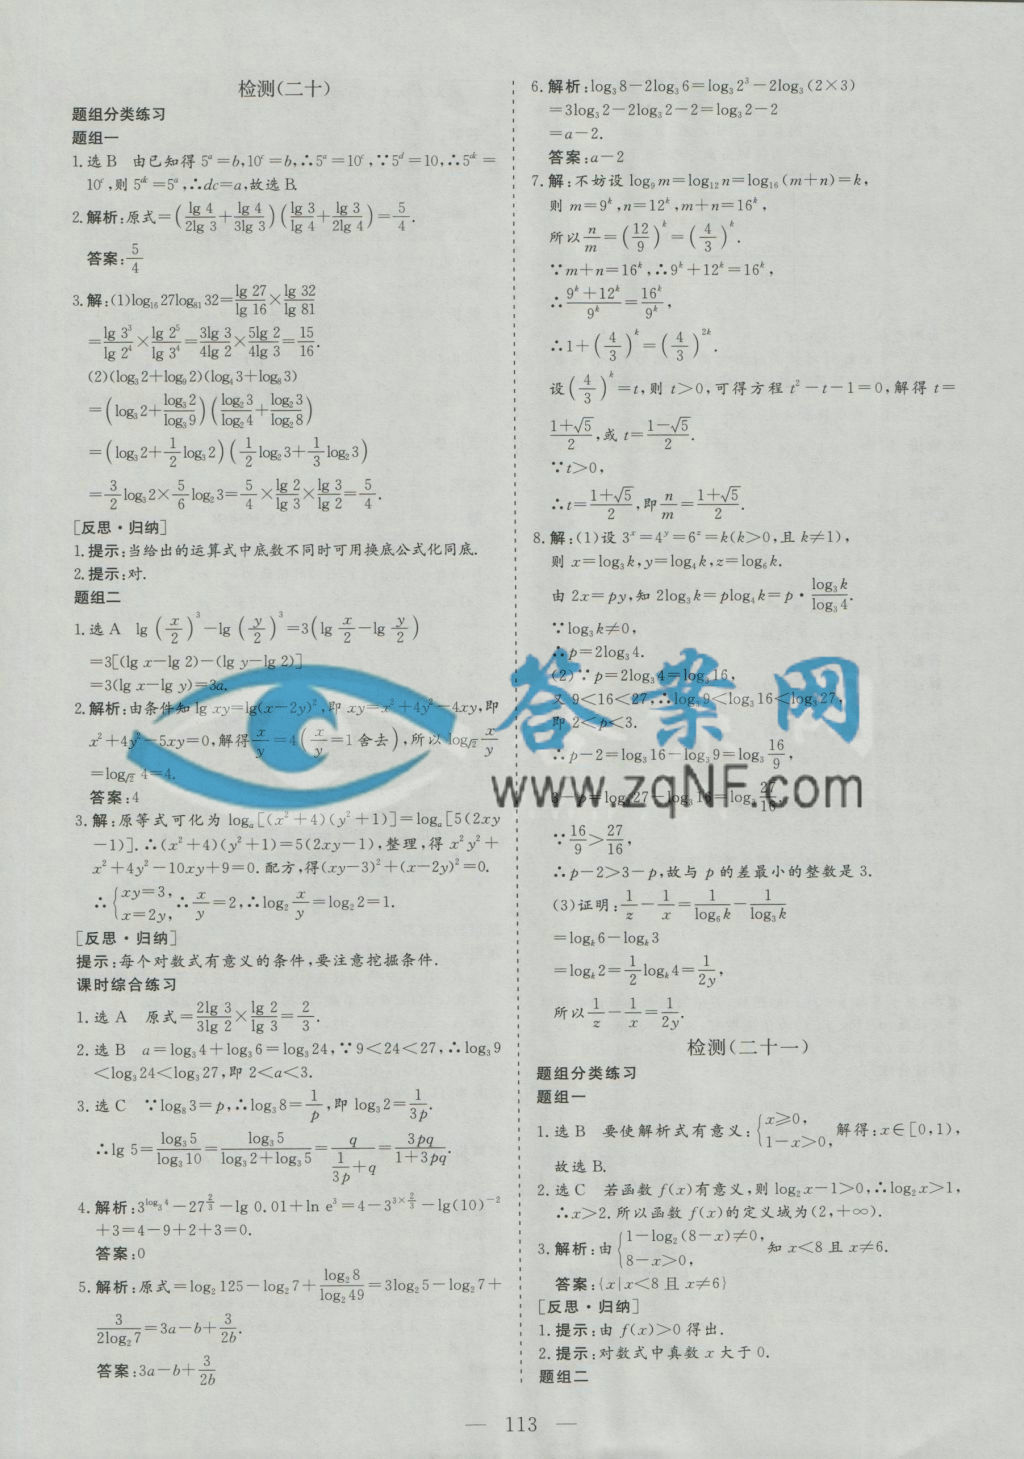 检测(二十)
题组分类练习
题组一
1.选B 由已知得5^a=b,10^c=b,∴5^a=10^c,∵5^d=10,∴5^{dc}=
10^c,则5^{dc}=5^a,∴dc=a,故选B.
2.解析:原式=(lg 4/2lg 3+lg 4/3lg 3)(lg 3/lg 4+lg 3/2lg 4)=5/4.
答案:5/4
3.解:(1)log₁₆27log₈₁32=lg 27/lg 16×lg 32/lg 81
=lg 3³/lg 2⁴×lg 2⁵/lg 3⁴=3lg 3/4lg 2×5lg 2/4lg 3=15/16.
(2)(log₃2+log₉2)(log₄3+log₈3)
=(log₃2+log₃2/log₃9)(log₂3/log₂4+log₂3/log₂8)
=(log₃2+1/2log₃2)(1/2log₂3+1/3log₂3)
=3/2log₃2×5/6log₂3=5/4×lg 2/lg 3×lg 3/lg 2=5/4.
[反思·归纳]
1.提示:当给出的运算式中底数不同时可用换底公式化同底.
2.提示:对.
题组二
1.选A lg(x/2)³-lg(y/2)³=3(lg x/2-lg y/2)
=3[(lg x-lg 2)-(lg y-lg 2)]
=3(lg x-lg y)=3a.
2.解析:由条件知lg xy=lg(x-2y)²,即xy=x²+4y²-4xy,即
x²+4y²-5xy=0,解得x/y=4(x/y=1舍去),所以log_{√2} x/y
=log_{√2}4=4.
答案:4
3.解:原等式可化为logₐ[(x²+4)(y²+1)]=logₐ[5(2xy
-1)].∴(x²+4)(y²+1)=5(2xy-1),整理,得x²y²+
x²+4y²-10xy+9=0.配方,得(xy-3)²+(x-2y)²=0.
∴{xy=3, x=2y,∴x/y=2,∴log₂x/y=log₂2=1.
[反思·归纳]
提示:每个对数式有意义的条件,要注意挖掘条件.
课时综合练习
1.选A 原式=2lg 3/3lg 2×lg 2/lg 3=2/3.
2.选B a=log₃4+log₃6=log₃24,∵9<24<27,∴log₃9
<log₃24<log₃27,即2<a<3.
3.选C ∵log₈3=p,∴log₃8=1/p,即log₃2=1/3p.
∴lg 5=log₃5/log₃10=log₃5/(log₃2+log₃5)=q/(1/3p+q)=3pq/(1+3pq).
4.解析:3^{log₃4}-27^{2/3}-lg 0.01+ln e³=4-3^{3×2/3}-lg(10)⁻²
+3=4-9+2+3=0.
答案:0
5.解析:原式=log₂125-log₂7+log₂8/log₂49=3log₂5-log₂7+
3/2log₂7=3a-b+3/2b.
答案:3a-b+3/2b
6.解析:log₃8-2log₃6=log₃2³-2log₃(2×3)
=3log₃2-2log₃2-2=log₃2-2
=a-2.
答案:a-2
7.解:不妨设log₉m=log₁₂n=log₁₆(m+n)=k,
则m=9^k,n=12^k,m+n=16^k,
所以n/m=(12/9)^k=(4/3)^k.
∵m+n=16^k,∴9^k+12^k=16^k,
∴(9^k+12^k)/9^k=16^k/9^k,
∴1+(4/3)^k=(4/3)^{2k}.
设(4/3)^k=t,则t>0,可得方程t²-t-1=0,解得t=
(1+√5)/2,或t=(1-√5)/2.
∵t>0,
∴t=(1+√5)/2,即n/m=(1+√5)/2.
8.解:(1)设3^x=4^y=6^z=k(k>0,且k≠1),
则x=log₃k,y=log₄k,z=log₆k.
由2x=py,知2log₃k=plog₄k=p·log₃k/log₃4.
∵log₃k≠0,
∴p=2log₃4.
(2)∵p=2log₃4=log₃16,
又9<16<27,∴log₃9<log₃16<log₃27,
即2<p<3.
∴p-2=log₃16-log₃9=log₃16/9,
3-p=log₃27-log₃16=log₃27/16,
∵16/9>27/16,
∴p-2>3-p,故与p的差最小的整数是3.
(3)证明:1/z-1/x=1/log₆k-1/log₃k
=log_k6-log_k3
=log_k2=1/2log_k4=1/2y,
所以1/z-1/x=1/2y.
检测(二十一)
题组分类练习
题组一
1.选B 要使解析式有意义:{x≥0, 1-x>0,解得:x∈[0,1),
故选B.
2.选C 若函数f(x)有意义,则log₂x-1>0,∴log₂x>1,
∴x>2.所以函数f(x)的定义域为(2,+∞).
3.解析:由{1-log₂(8-x)≠0, 8-x>0,知x<8且x≠6.
答案:{x|x<8且x≠6}
[反思·归纳]
1.提示:由f(x)>0得出.
2.提示:对数式中真数x大于0.
题组二
— 113 —
答案网
www.zqNF.com